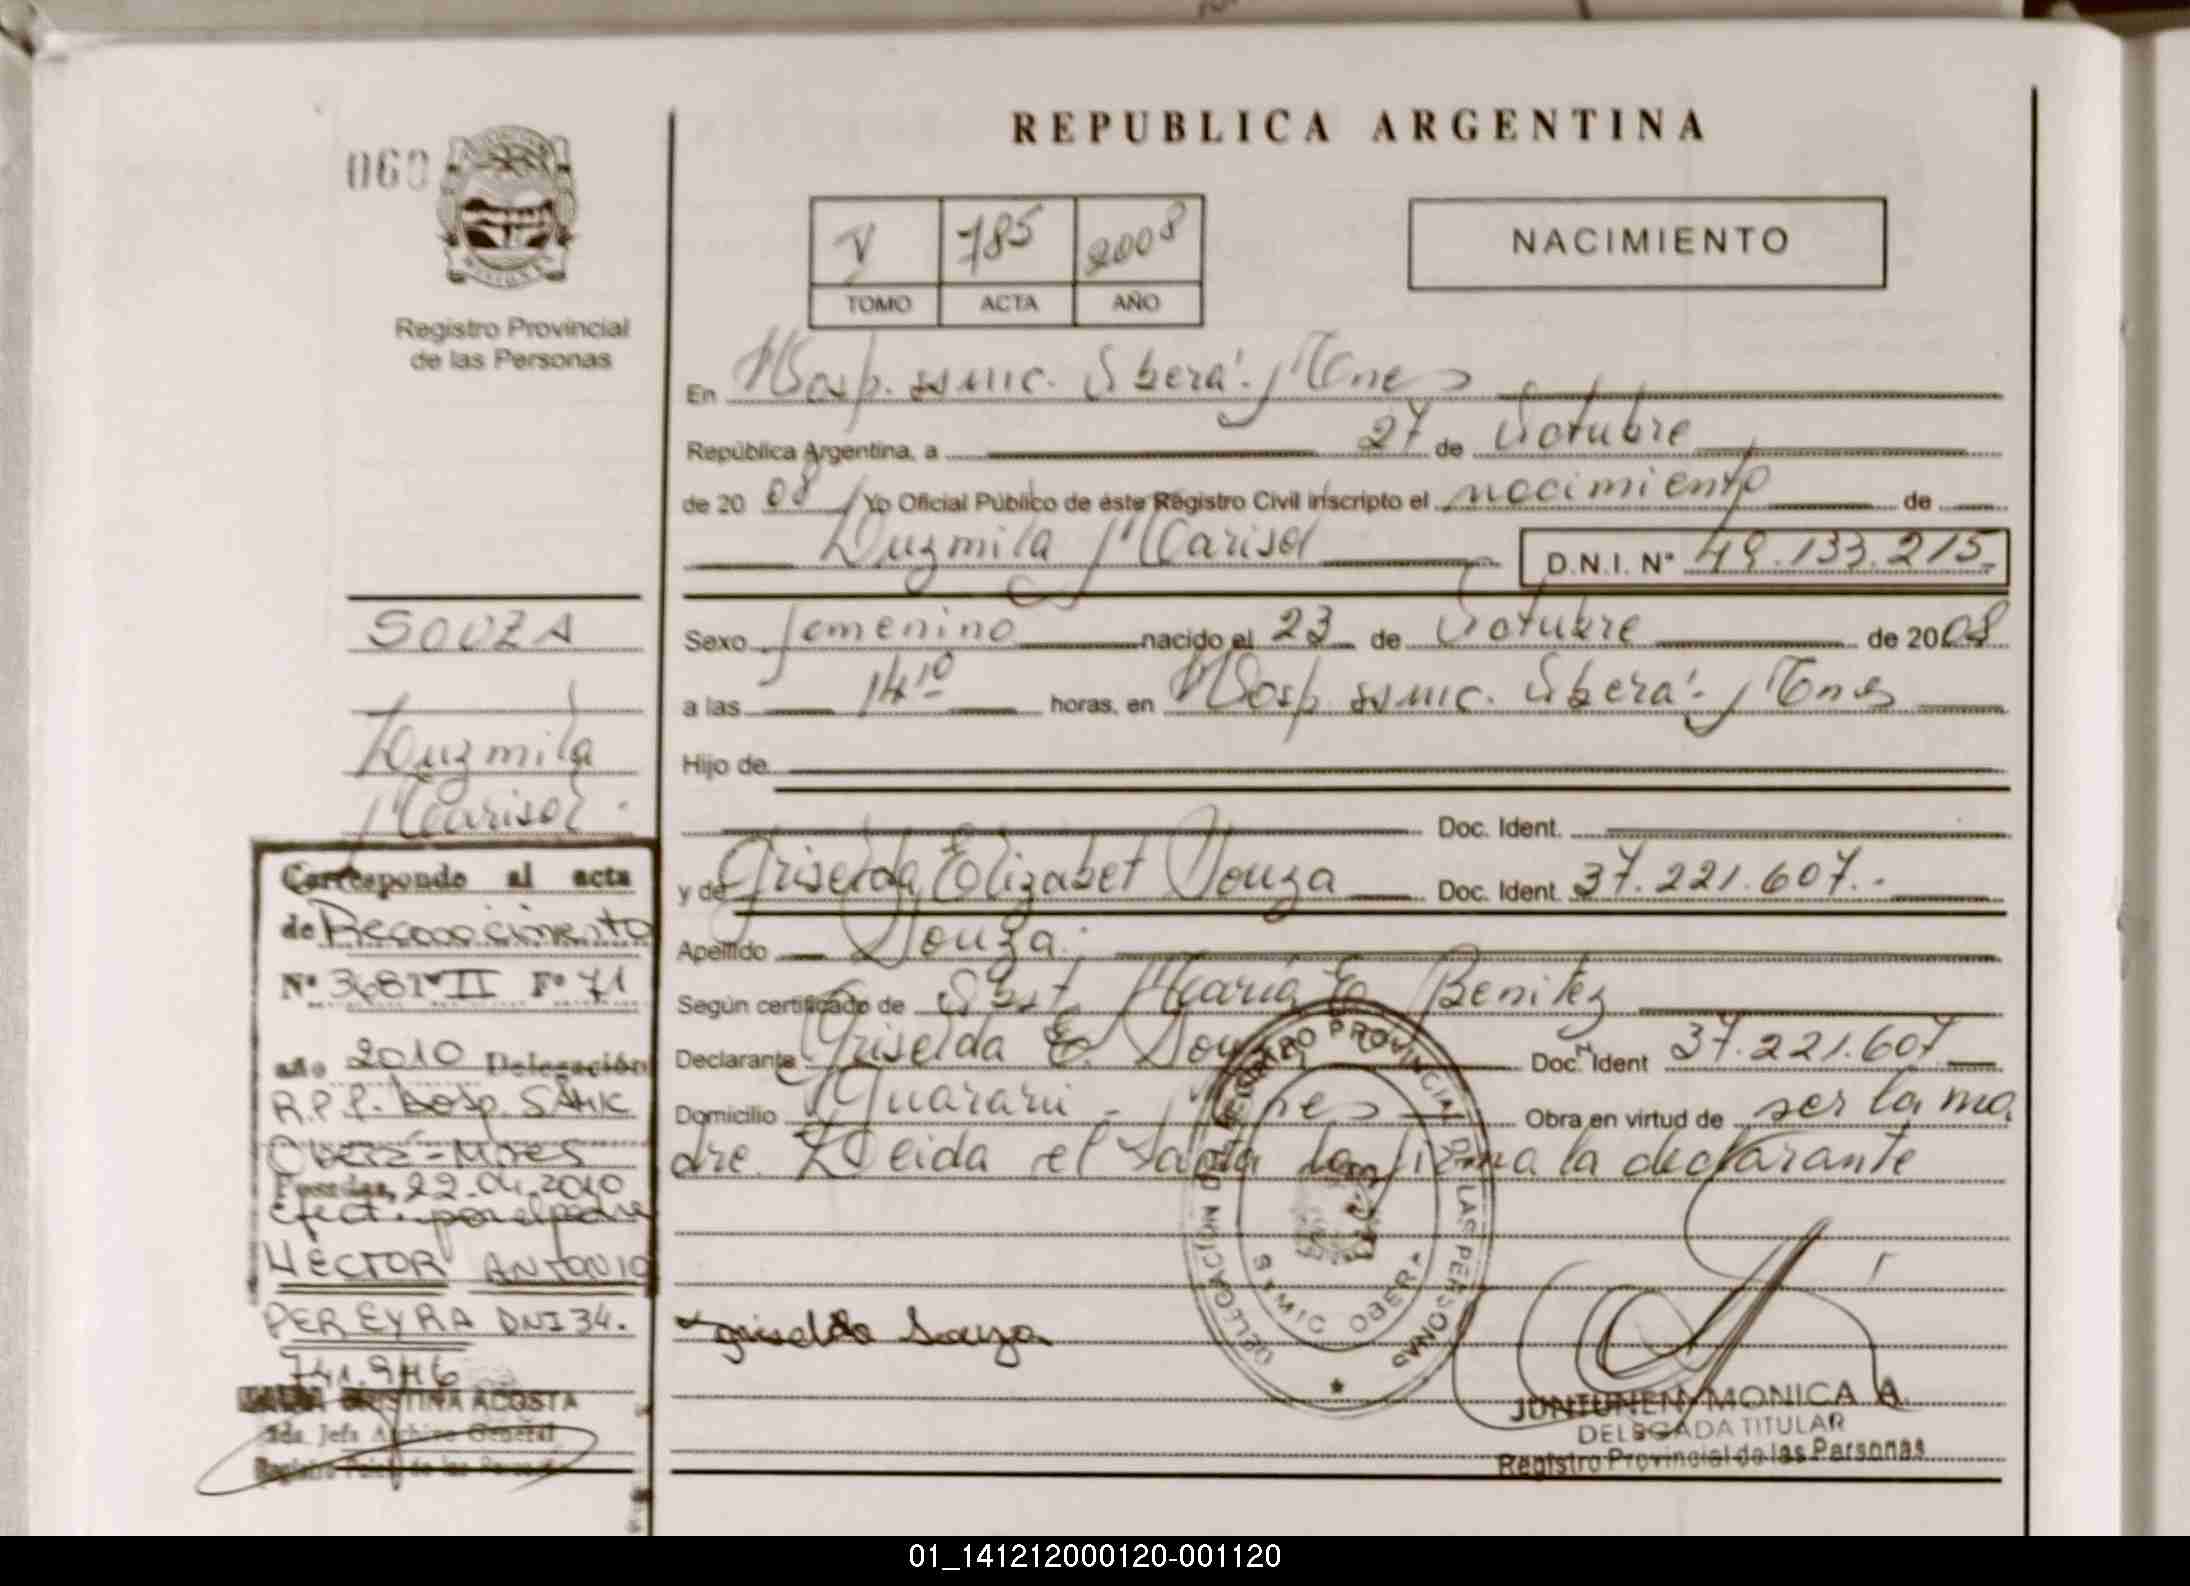 REPUBLICA ARGENTINA
060
Registro Provincial
de las Personas
V 785 2008
TOMO ACTA AÑO
NACIMIENTO
En Hosp. SAMIC. Oberá. Mnes
República Argentina, a 27 de Octubre
de 20 08 Yo Oficial Público de éste Registro Civil inscripto el nacimiento de
Luzmila Marisol
D.N.I. Nº 49.133.215
Sexo femenino nacido el 23 de Octubre de 2008
a las 14 10 horas, en Hosp. SAMIC. Oberá. Mnes
Hijo de
Doc. Ident.
y de Griselda Elizabet Souza Doc. Ident. 37.221.607.
Apellido Souza.
Según certificado de Obst. María E. Benitez
Declarante Griselda E. Souza Doc. Ident 37.221.607
Domicilio Guaraní - Mnes Obra en virtud de ser la ma
dre. Leida el acta la firma la declarante
Griselda Souza
REGISTRO PROVINCIAL DE LAS PERSONAS
DELEGACION
SAMIC OBERA
JUNTUNEN MONICA A.
DELEGADA TITULAR
Registro Provincial de las Personas
SOUZA
Luzmila
Marisol.
Corresponde al acta
de Reconocimiento
Nº 368 Tº II Fº 71
año 2010 Delegación
R.P.P. Hosp. SAMIC
Oberá - Mnes
Posadas, 22.04.2010
Efect. por el padre
HECTOR ANTONIO
PEREYRA DNI 34.
741.946
CRISTINA ACOSTA
Jefa Archivo General
Registro de las
01_141212000120-001120